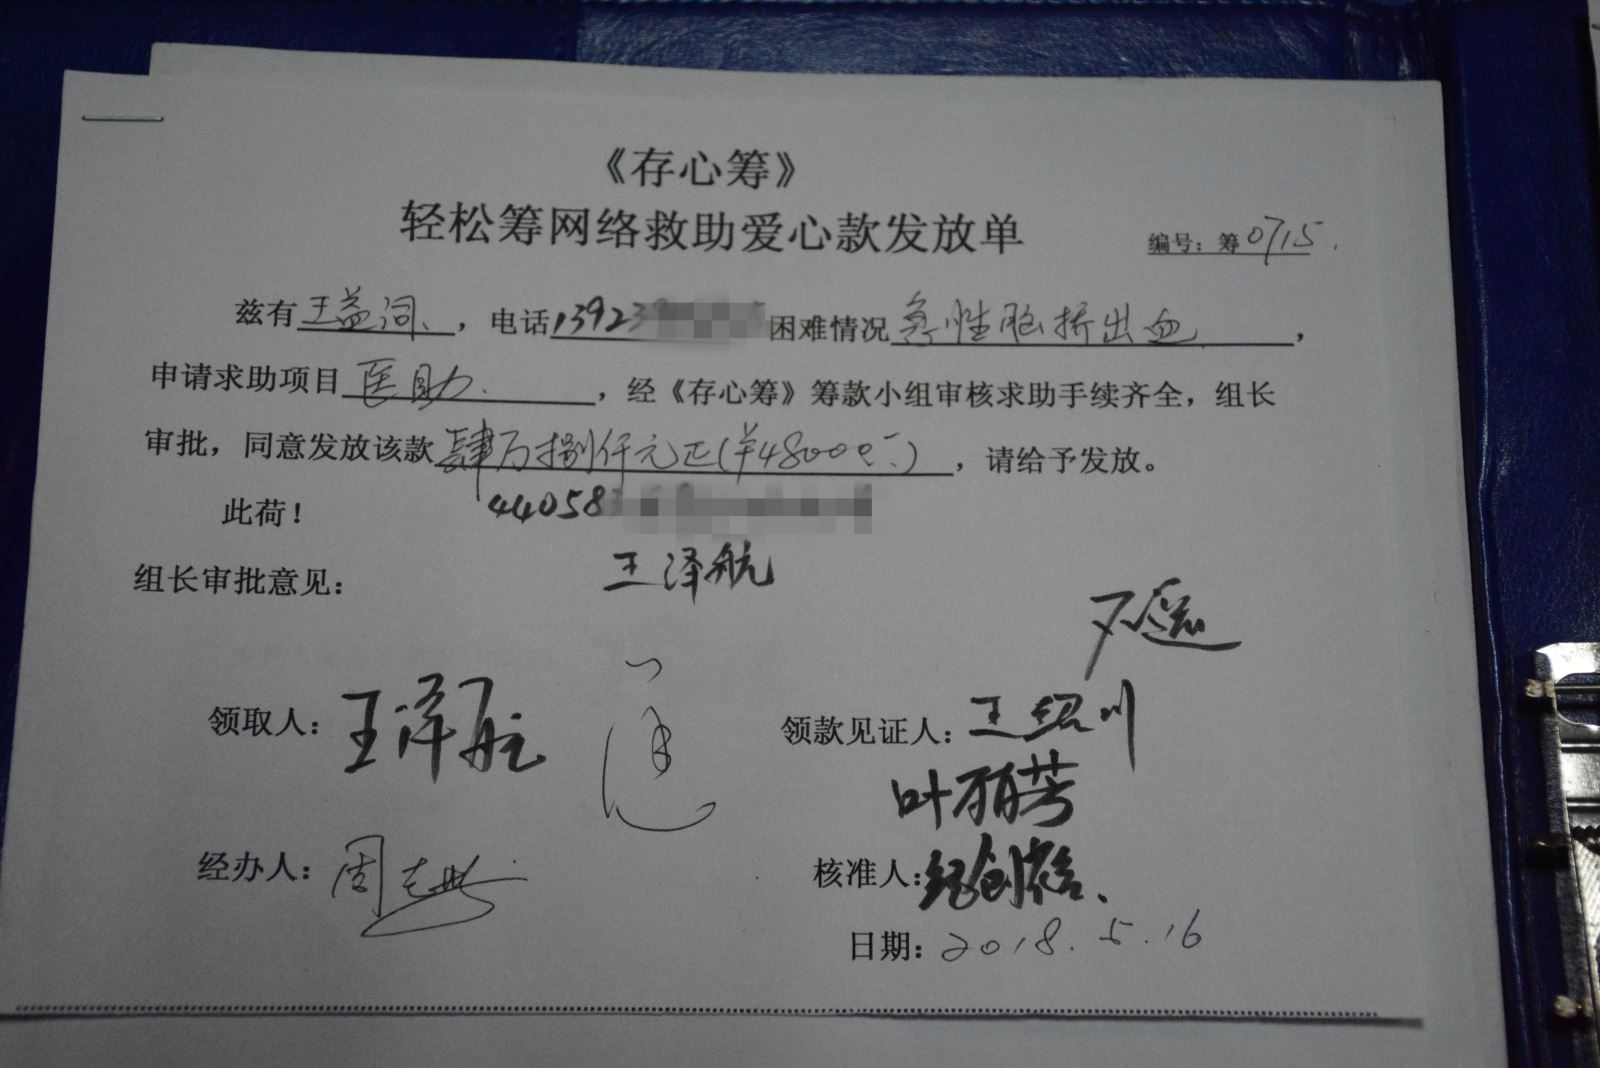 《存心筹》
轻松筹网络救助爱心款发放单
编号：筹0715.
兹有王益洵，电话13923 困难情况急性脑桥出血，
申请求助项目医助.，经《存心筹》筹款小组审核求助手续齐全，组长
审批，同意发放该款肆万捌仟元正(¥48000元)，请给予发放。
此荷！ 44058
组长审批意见： 王泽航
领取人：王泽航 领款见证人：王绍川
叶丽芳
经办人：周 核准人：
日期：2018.5.16